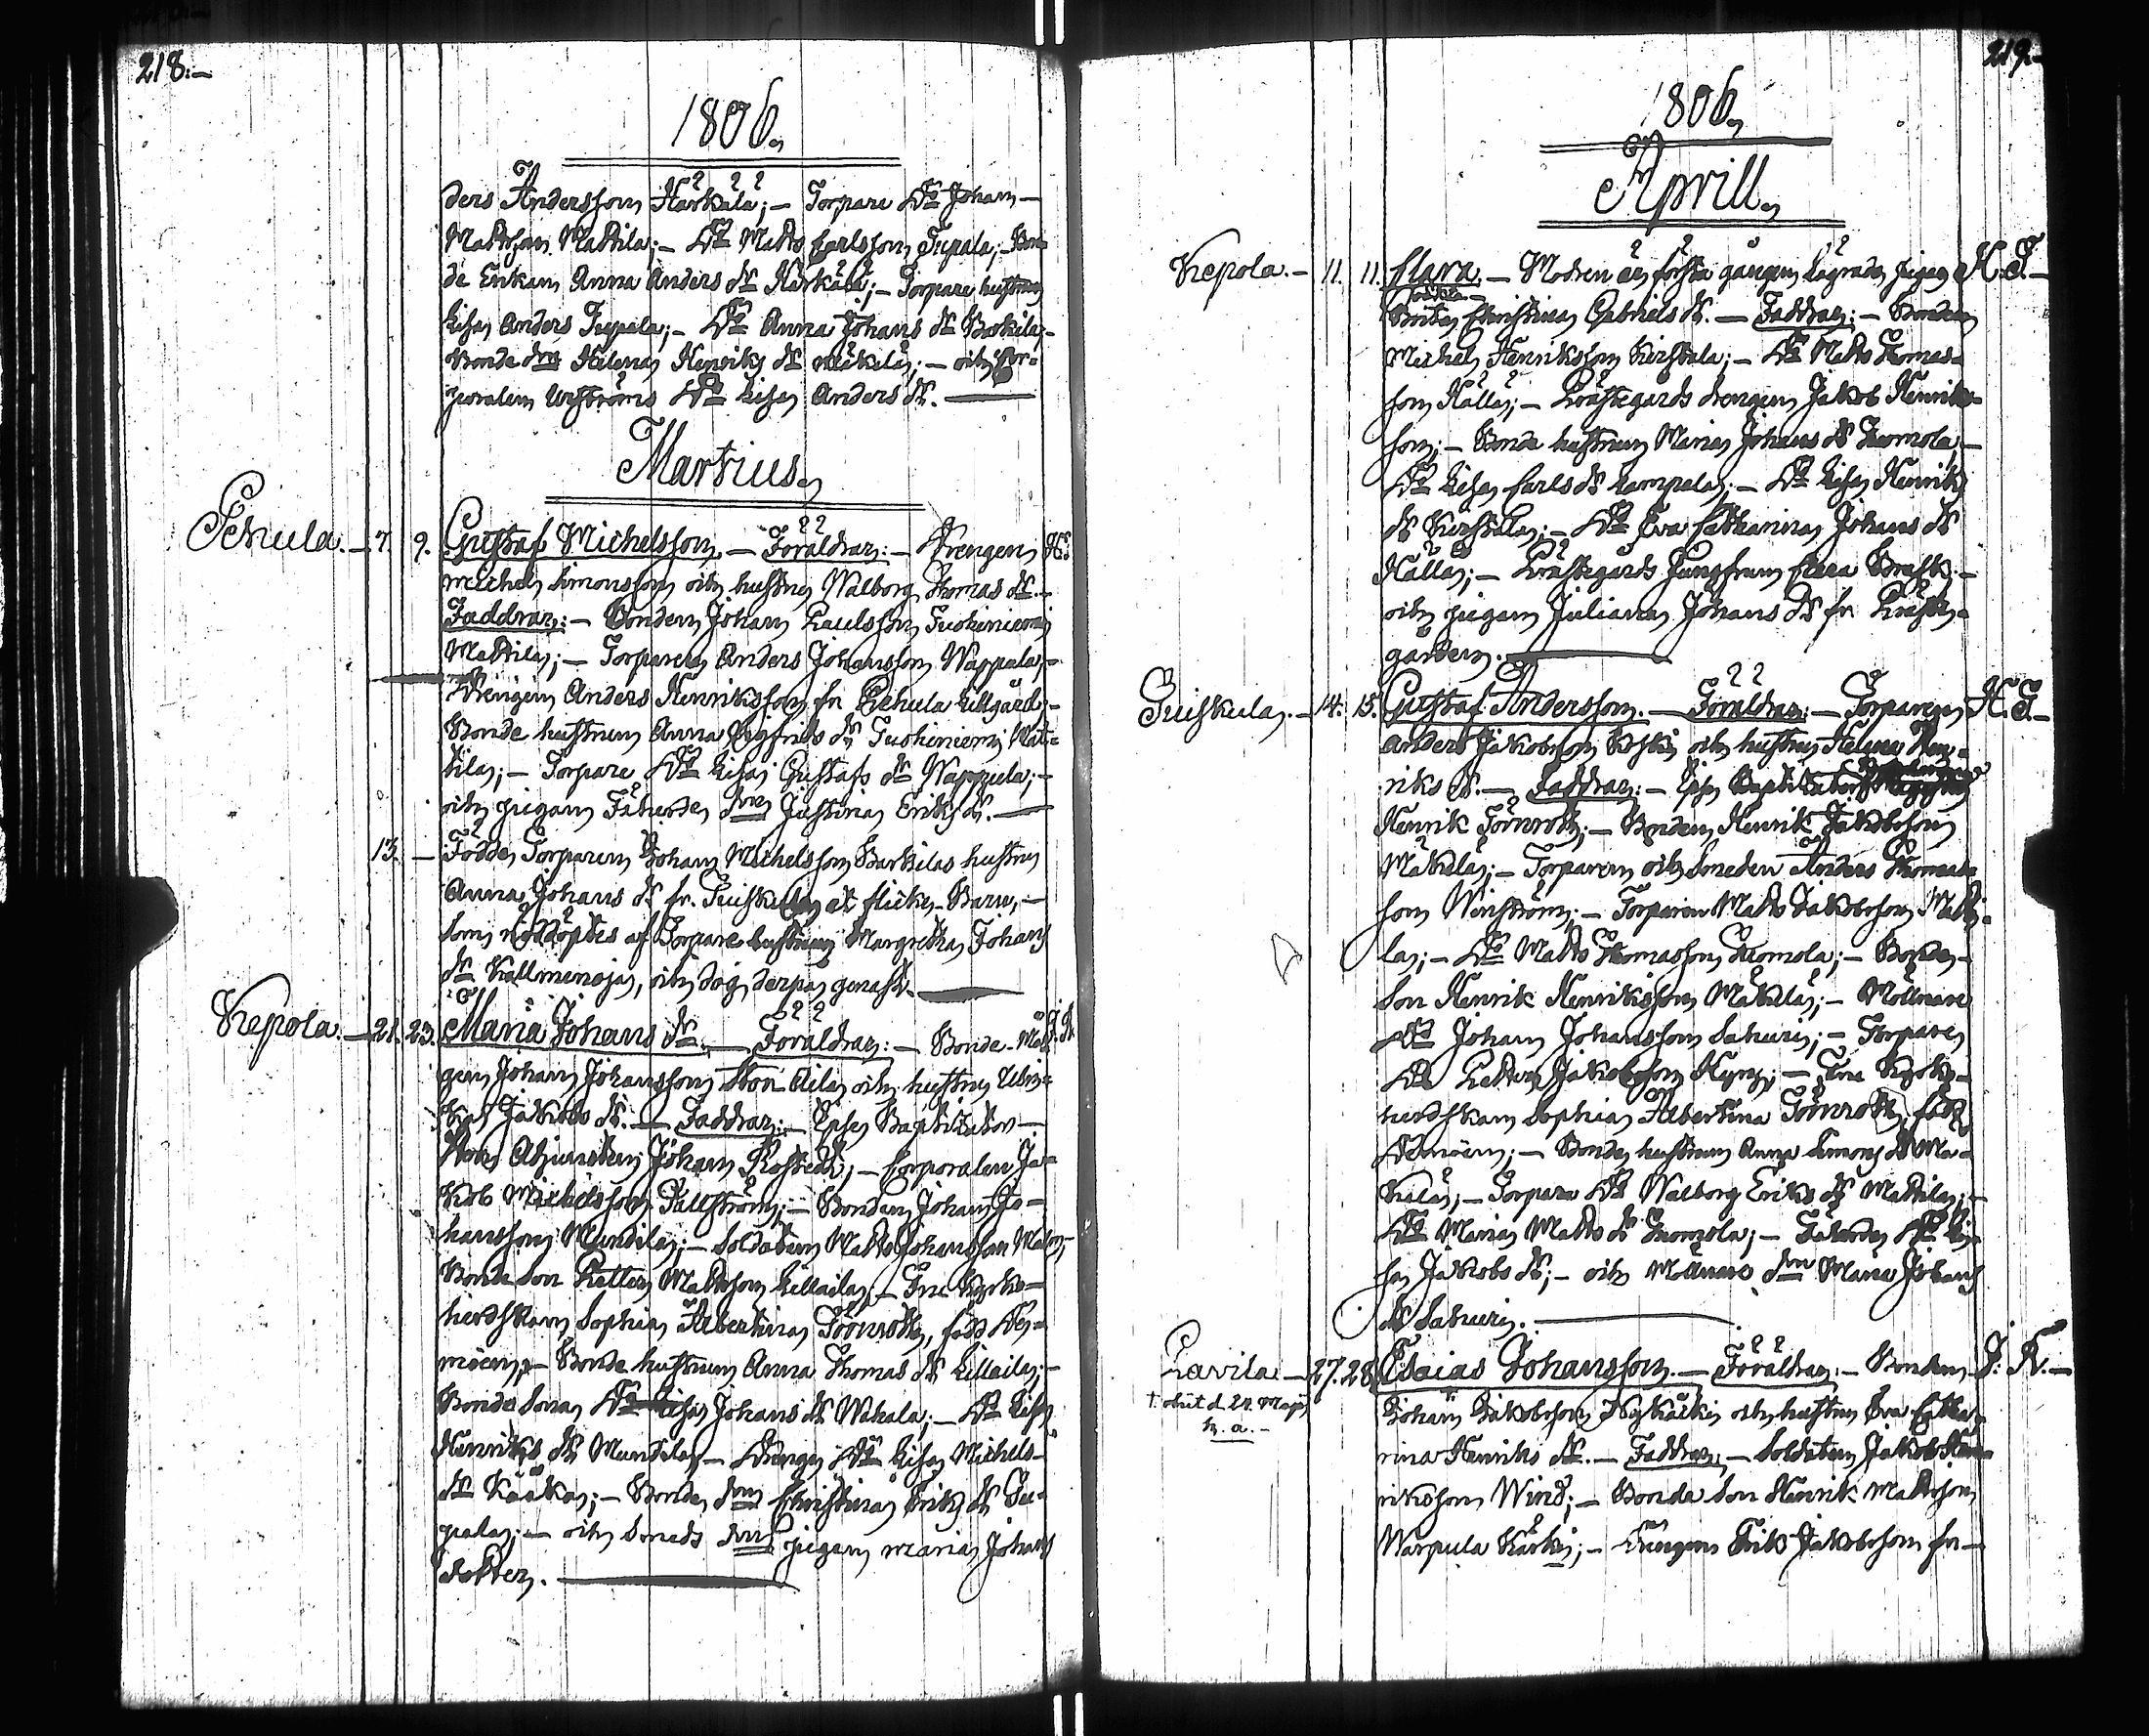 218.
1806.
ders Andersson Härkälä; — Torpare Do Johan
Matsson Mattila; — Do Matts Carlsson Tupala; — Bon-
de Enkan Anna Anders dr Härkälä; — Torpare hustrun
Lisa Anders Tupala; — Do Anna Johans dr
Bonde drn Helena Henriks dr Mäkilä; — och Cor-
poralen Do Lisa Anders dr. —
Martius
Pehula. — 7. 9. Gustaf Michelsson. — Föräldrar: — Drengen H.
Michel Simonsson och hustru Walborg Thomas dr. —
Faddrar: — Bonden Johan Paulsson Tuohiniemi
Mattila; — Torparen Anders Johansson Wappula; —
Drengen Anders Henriksson fr Pehula Lillgård; —
Bonde hustrun Anna Sigfrids dr Tuohiniemi Mat-
tila; — Torpare Do Lisa Gustafs dr Wappula; —
och pigan Justina Eriks dr. —
13. — Födde Torparen Johan Michelsson hustru
Anna Johans dr fr. Puiskula et flicke-Barn, —
som nöddöptes af Torpare hustrun Margretha Johans
dr Kallmenoja, och dog derpå genast. —
Kepola. — 21. 23. Maria Johans dr. — Föräldrar: — Bonde-Må-
gen Johan Johansson Stor Aila och hustru Ulri-
ka Jakobs dr. — Faddrar: — Ipse Baptizator —
Herr Adjuncten Johan — Corporalen Ja-
kob Michelsson Pallström; — Bonden Johan Jo-
hansson Mundila; — Soldaten Matts Johansson
Bonde Son Petter Mattsson Lillaila; — Fru Kyrko-
herdskan Sophia Albertina Törnroth, född
— Bonde hustrun Anna Thomas dr Lillaila; —
Bonde Sona Do Lisa Johans dr Wahala; — Do Lisa
Henriks dr Mundila; — Drenge Do Lisa Michels
dr Kääkä; — Bonde drn Christina Eriks dr Tu-
pala; — och pigan Maria Johans
dotter. —
219.
1806.
Aprill
Kepola. — 11. 11. Clara. — Modren är första gången lägrade pigan H. T. —
Brita Christina Gabriels dr. — Faddrar: — Bonden
Michel Henriksson Kirstala; — Do Matts Thomas-
son Källä; — Prästegårds drengen Jakob Henriks-
son; — Bonde hustrun Maria Johans dr Tuomola; —
Do Lisa Carls dr Lampala; — Do Lisa Henriks
dr Kirstala; — Do Eva Catharina Johans dr
Källä; — Prästegårds Jungfrun Clara
och pigan Juliana Johans dr fr Präste-
gården. —
Puiskula. — 14. 15. Gustaf Andersson. — Föräldrar: — Torparen H. T. —
Anders Jakobsson och hustru Helena Hen-
riks dr. — Faddrar: — Ipse Baptizator
Henrik Törnroth; — Bonden Henrik Jakobsson
Mäkilä; — Torparen och Smeden Anders Thomas-
son Winström; — Torparen Matts Jakobsson Matti-
la; — Do Matts Thomasson Tuomola; — Bonde-
Son Henrik Henriksson Mäkilä; — Möllnare
Do Johan Johansson Sahuri; — Torpare
Do Petter Jakobsson — Fru Kyrko-
herdskan Sophia Albertina Törnroth, född
— Bonde hustrun Anna Simons dr Mä-
kilä; — Torpare Do Walborg Eriks dr Mattila; —
Do Maria Matts dr Tuomola; — Do Li-
sa Jakobs dr; — och Möllnare drn Maria Johans
dr Sahuri. —
Lavila — 27. 28. Esaias Johansson. — Föräldrar: — Bonden J. R. —
† obiit d. 28. Maji
h. a. —
Johan Jakobsson och hustru Eva Catha-
rina Henriks dr. — Faddrar: — Soldaten Jakob Hen-
riksson Wind; — Bonde Son Henrik Mattsson
Warpula Kärki; — Drengen Erik Jakobsson fr —